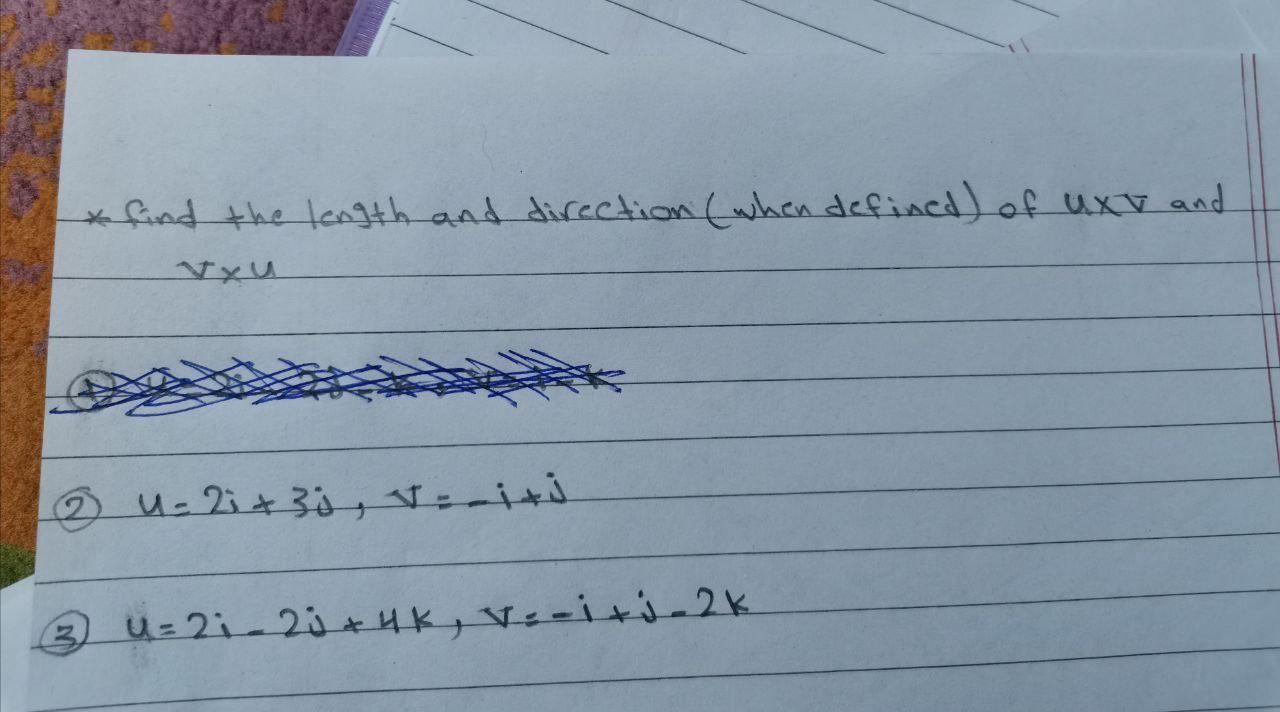 * find the length and direction (when defined) of u×v and
v×u
② u = 2i + 3j , v = -i + j
③ u = 2i - 2j + 4k , v = -i + j - 2k